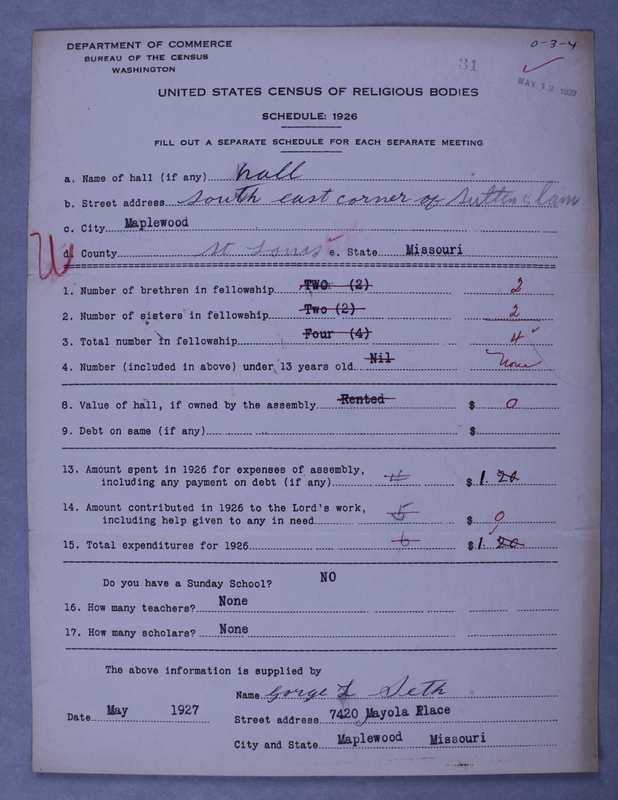 DEPARTMENT OF COMMERCE
BUREAU OF THE CENSUS
WASHINGTON
0-3-4
31
MAY 12 1927
UNITED STATES CENSUS OF RELIGIOUS BODIES
SCHEDULE: 1926
FILL OUT A SEPARATE SCHEDULE FOR EACH SEPARATE MEETING
a. Name of hall (if any) hall
b. Street address South east corner of
c. City Maplewood
d. County St Louis e. State Missouri
1. Number of brethren in fellowship TWO (2) 2
2. Number of sisters in fellowship Two (2) 2
3. Total number in fellowship Four (4) 4
4. Number (included in above) under 13 years old Nil None
8. Value of hall, if owned by the assembly Rented $ 0
9. Debt on same (if any) $
13. Amount spent in 1926 for expenses of assembly,
including any payment on debt (if any) $ 1. 20
14. Amount contributed in 1926 to the Lord's work,
including help given to any in need 5 $ 0
15. Total expenditures for 1926 6 $ 1. 20
Do you have a Sunday School? NO
16. How many teachers? None
17. How many scholars? None
The above information is supplied by
Name Gorge L Seth
Date May 1927
Street address 7420 Mayola Place
City and State Maplewood Missouri